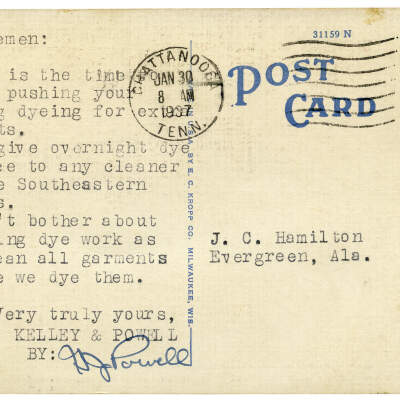 emen:
is the time
pushing your
g dyeing for ext
ts.
give overnight dye
ce to any cleaner
e Southeastern
s.
't bother about
ing dye work as
ean all garments
e we dye them.
Very truly yours,
KELLEY & POWELL
BY: H J Powell
CHATTANOOGA
JAN 30
8 AM
1937
TENN.
31159 N
POST
CARD
A BY E. C. KROPP CO. MILWAUKEE, WIS.
J. C. Hamilton
Evergreen, Ala.